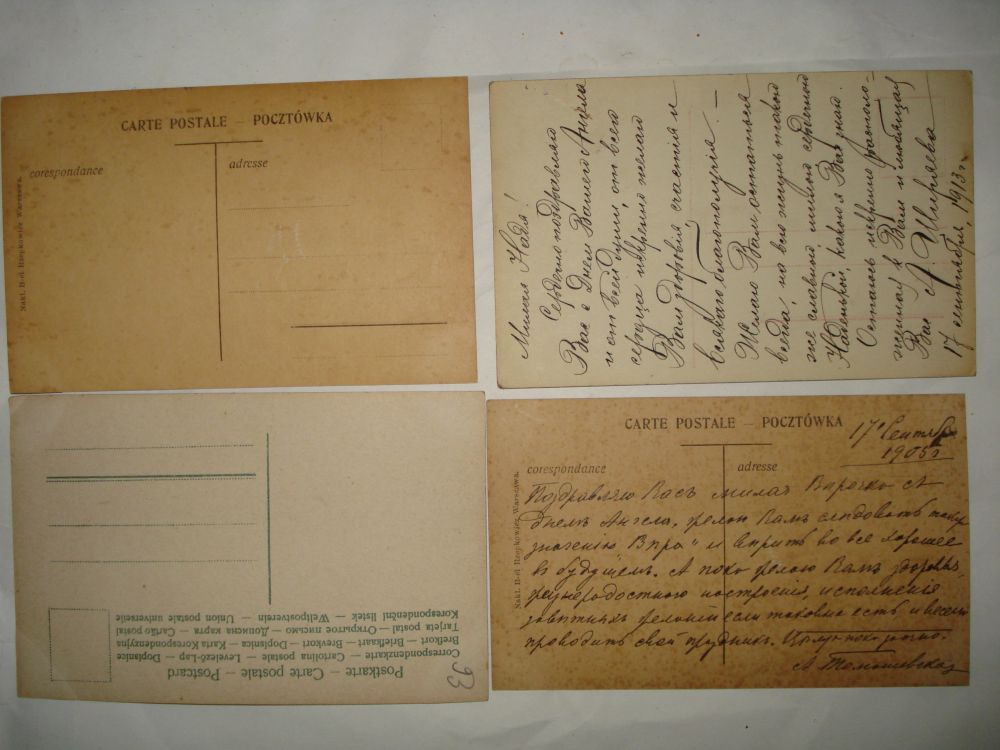 CARTE POSTALE — POCZTÓWKA
corespondance
adresse
Nakł. B-ci Rzepkowicz Warszawa.
Милая Надя!
Сердечно поздравляю
Васъ с Днемъ Вашего Ангела
и отъ всей души, отъ всего
сердца искренно желаю
Вамъ здоровья счастія и
всякаго благополучія. —
Желаю Вамъ остаться
всегда, на всю жизнь такой
же славной милой сердечной
Наденькой, какою я Васъ знаю.
Остаюсь искренно располо-
женная къ Вамъ и любящая
Васъ А. Ширяева
17 сентября, 1913 г.
Postkarte — Carte postale — Postcard
Correspondenzkarte — Cartolina postale — Levelező-Lap — Dopisnice
Brefkort — Briefkaart — Brevkort — Dopisnica — Karta Korespondencyjna
Tarjeta postal — Открытое письмо — Дописна карта — Cartão postal
Korespondenční listek — Weltpostverein — Union postale universelle
93
CARTE POSTALE — POCZTÓWKA
17 Сентября
1905 г
corespondance
adresse
Nakł. B-ci Rzepkowicz Warszawa.
Поздравляю Васъ милая Вѣрочка съ
днемъ Ангела, желаю Вамъ слѣдовать
значенію „Вѣра" и вѣрить во все хорошее
въ будущемъ. А пока желаю Вамъ здоровья,
настроенія, исполненія
завѣтныхъ желаній если таковыя есть и весело
проводить свой праздникъ.
А. Томашевская